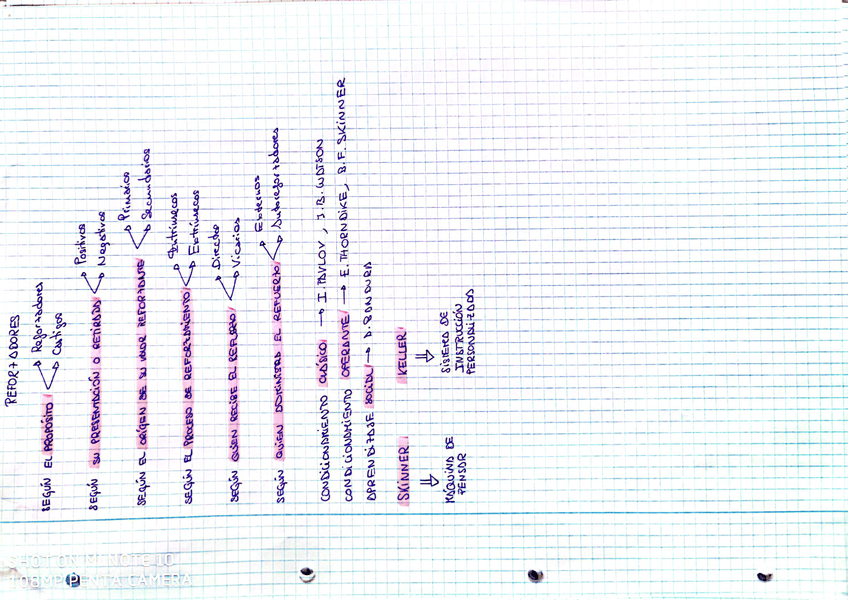 REFORZADORES
SEGÚN EL PROPÓSITO Reforzadores
Castigos
SEGÚN SU PRESENTACIÓN O RETIRADA Positivos
Negativos
SEGÚN EL ORÍGEN DE SU VALOR REFORZANTE Primarios
Secundarios
SEGÚN EL PROCESO DE REFORZAMIENTO Intrínsecos
Extrínsecos
SEGÚN QUIEN RECIBE EL REFUERZO Directos
Vicarios
SEGÚN QUIÉN ADMINISTRA EL REFUERZO Externos
Autoreforzadores
CONDICIONAMIENTO CLÁSICO → I. PAVLOV, J.B. WATSON
CONDICIONAMIENTO OPERANTE → E. THORNDIKE, B.F. SKINNER
APRENDIZAJE SOCIAL → A. BANDURA
SKINNER KELLER
MÁQUINA DE PENSOR SISTEMA DE INSTRUCCIÓN PERSONALIZADOS
SHOT ON MI NOTE 10
108MP PENTA CAMERA